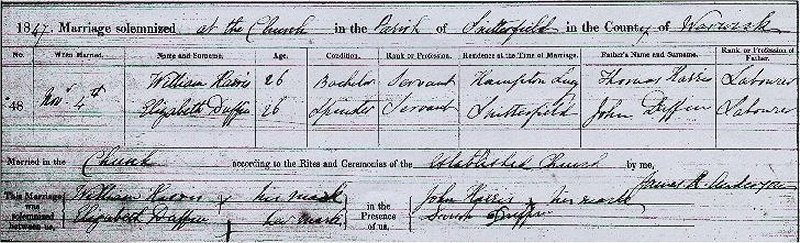 1847. Marriage solemnized at the Church in the Parish of Snitterfield in the County of Warwick
No. When Married. Name and Surname. Age. Condition. Rank or Profession. Residence at the Time of Marriage. Father's Name and Surname. Rank or Profession of Father.
William Harris 26 Bachelor Servant Hampton Lucy Thomas Harris Labourer
48 Novr 4th Elizabeth Duffin 26 Spinster Servant Snitterfield John Duffin Labourer
Married in the Church according to the Rites and Ceremonies of the Established Church by me,
James H.
This Marriage was solemnized between us, William Harris x his mark in the Presence of us, John Harris x his mark
Elizabeth Duffin her mark Duffin